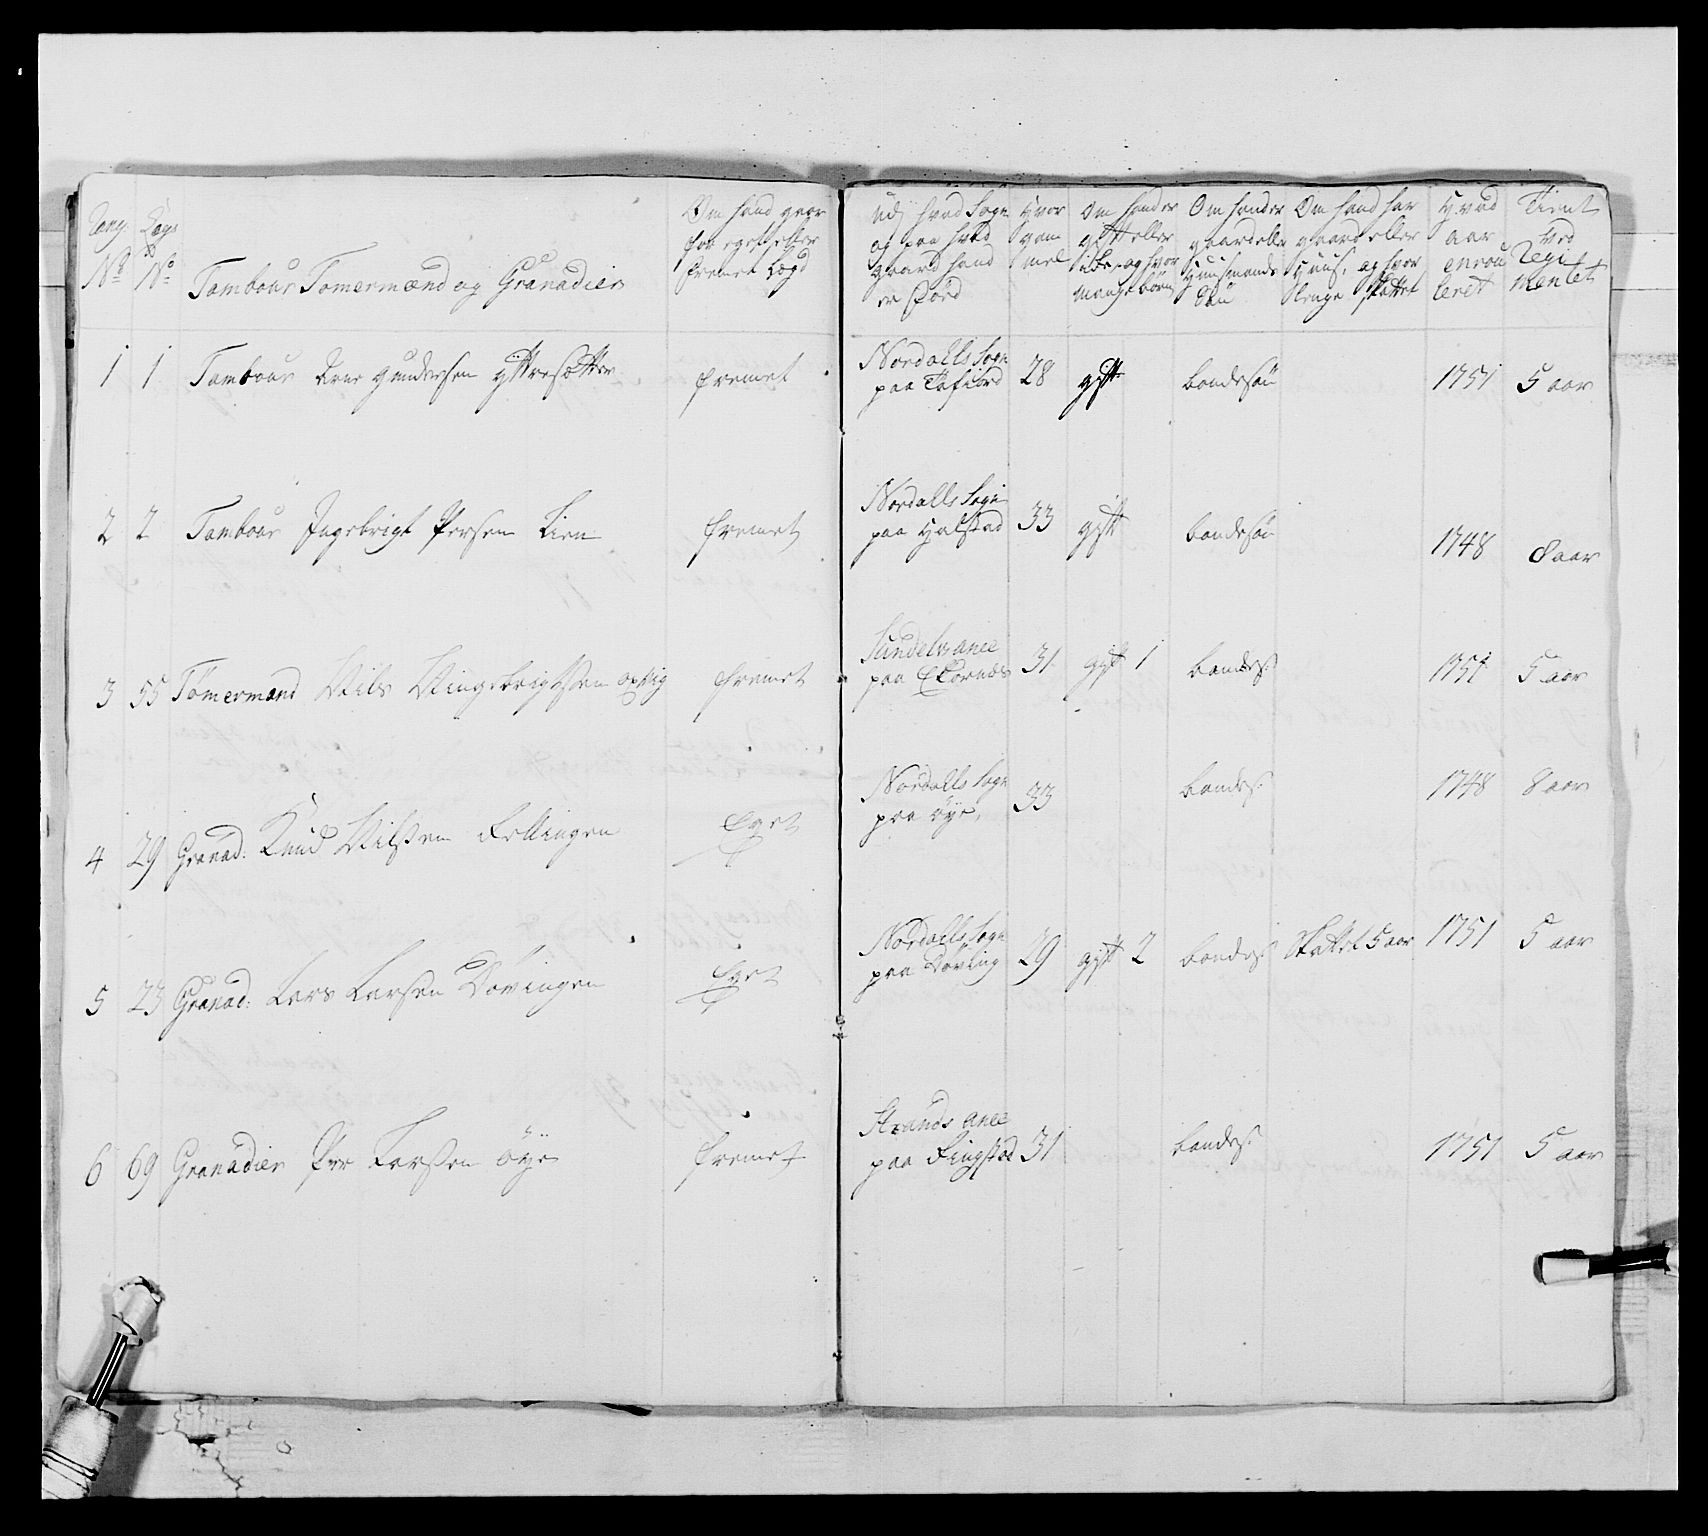 Rang No
Lægs No
Tambour Tømermænd og Granadier
Om hand giør for eget eller fremet Lægd
Udj hvad Sogn og paa hvad gaard hand er fød
Hvor gam mel
Om hand er gift eller icke, og hvor mange børn
Om hand er gaard eller Huusmands Søn
Om hand har gaard eller Huus, og hvor lenge skattet
Hvad aar enroul leret
Tient ved Regi mentet
1 1 Tambour Arne Gundersen Yttresætter fremet Nordalls Sogn paa Tafiord 28 gift bondesøn 1751 5 aar
2 2 Tambour Ingebrigt Persen Lien fremet Nordalls Sogn paa Halstad 33 gift bondesøn 1748 8 aar
3 55 Tømermand Nils Ingebrigtsen opvig fremet Sundelv anee paa Ekornæs 31 gift 1 bondes: 1751 5 aar
4 29 Granad: Knud Nilsen Rellingen Eget Nordalls Sogn paa øye, 33 bondes: 1748 8 aar
5 23 Granad: Lars Larsen Døvingen Eget Nordalls Sogn paa Døving 29 gift 2 bondes: Skattet 5 aar 1751 5 aar
6 69 Granadier Per Larsen øye fremet Strands anee paa Ringstad 31 bondes: 1751 5 aar